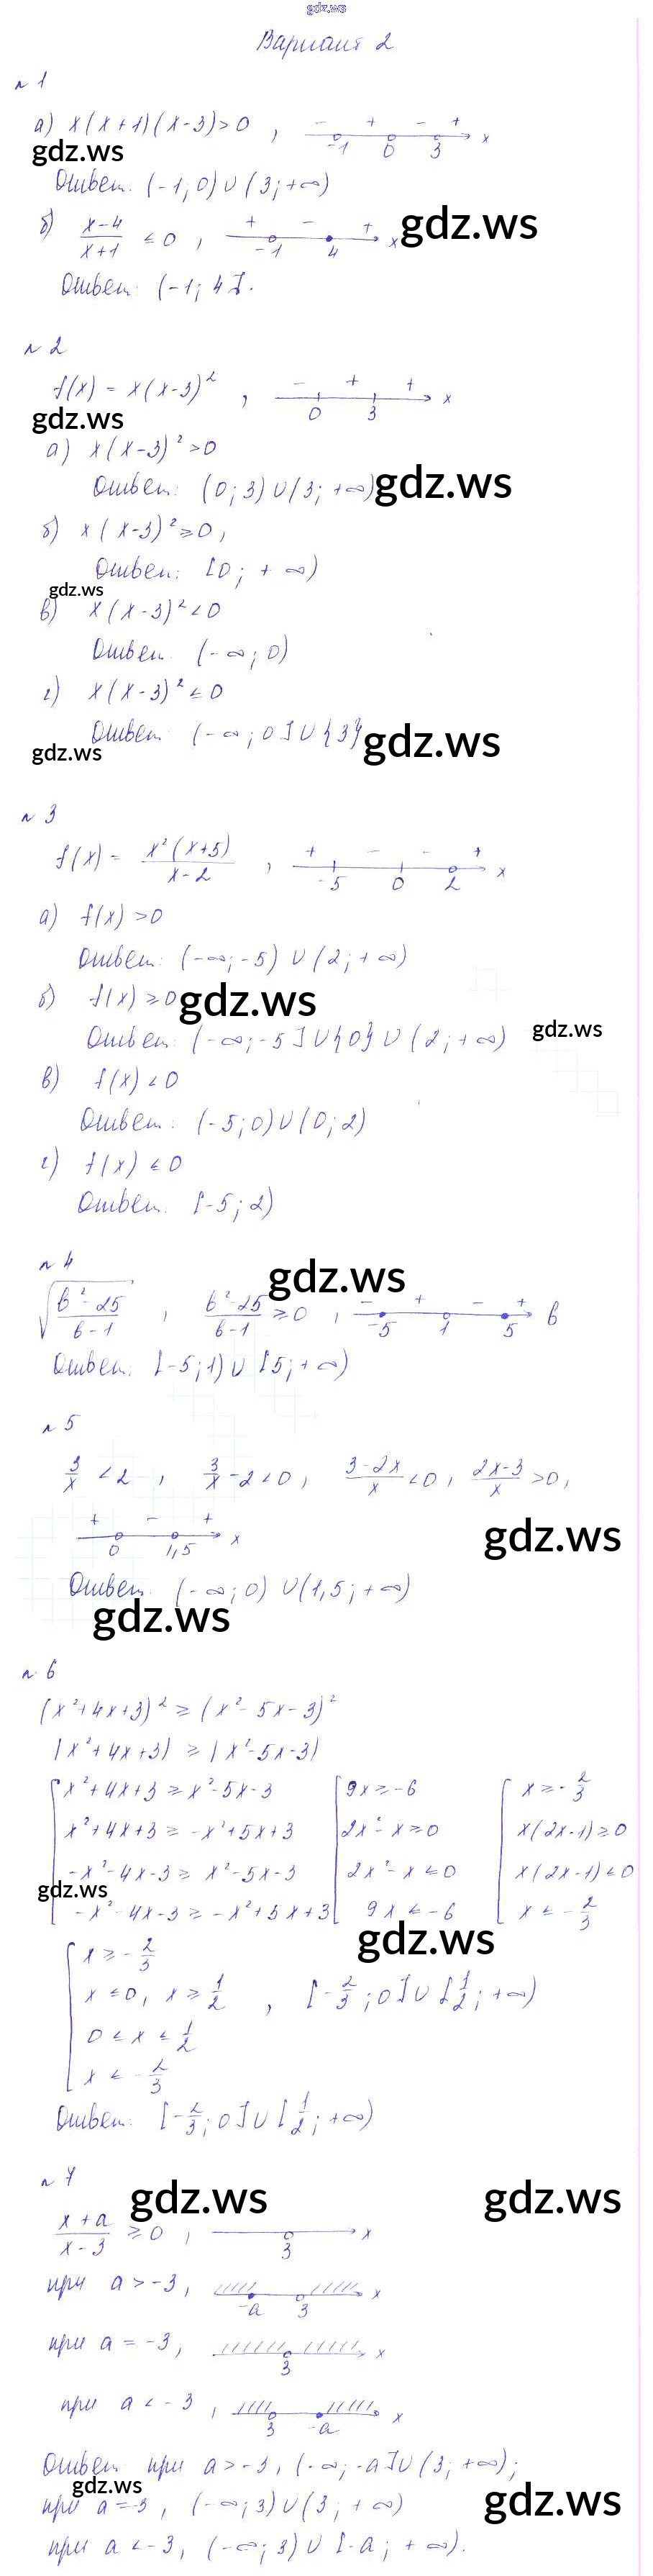 gdz.ws
Вариант 2
№ 1
а) x(x+1)(x-3)>0 , - + - + -1 0 3 x
gdz.ws
Ответ: (-1; 0) ∪ (3; +∞)
б) (x-4)/(x+1) ≤ 0 , + - + -1 4 x gdz.ws
Ответ: (-1; 4].
№ 2
f(x) = x(x-3)² , - + + 0 3 x
gdz.ws
а) x(x-3)² >0
Ответ: (0; 3) ∪ (3; +∞) gdz.ws
б) x(x-3)² ≥ 0,
Ответ: [0; +∞)
gdz.ws
в) x(x-3)² < 0
Ответ: (-∞; 0)
г) x(x-3)² ≤ 0
Ответ: (-∞; 0] ∪ {3} gdz.ws
gdz.ws
№ 3
f(x) = x²(x+5)/(x-2) , + - - + -5 0 2 x
а) f(x) >0
Ответ: (-∞; -5) ∪ (2; +∞)
б) f(x) ≥ 0 gdz.ws
Ответ: (-∞; -5] ∪ {0} ∪ (2; +∞) gdz.ws
в) f(x) < 0
Ответ: (-5; 0) ∪ (0; 2)
г) f(x) ≤ 0
Ответ: [-5; 2)
№ 4 gdz.ws
√((b²-25)/(b-1)) , (b²-25)/(b-1) ≥ 0 , - + - + -5 1 5 b
Ответ: [-5; 1) ∪ [5; +∞)
№ 5
3/x < 2 , 3/x - 2 < 0 , (3-2x)/x < 0 , (2x-3)/x > 0 ,
+ - + 0 1,5 x gdz.ws
Ответ: (-∞; 0) ∪ (1,5; +∞)
gdz.ws
№ 6
(x²+4x+3)² ≥ (x²-5x-3)²
|x²+4x+3| ≥ |x²-5x-3|
[ x²+4x+3 ≥ x²-5x-3 [ 9x ≥ -6 [ x ≥ -2/3
x²+4x+3 ≥ -x²+5x+3 2x²-x ≥ 0 x(2x-1) ≥ 0
-x²-4x-3 ≥ x²-5x-3 2x²-x ≤ 0 x(2x-1) ≤ 0
gdz.ws
-x²-4x-3 ≥ -x²+5x+3 9x ≤ -6 x ≤ -2/3
gdz.ws
[ x ≥ -2/3
x ≤ 0, x ≥ 1/2 , [-2/3; 0] ∪ [1/2; +∞)
0 ≤ x ≤ 1/2
x ≤ -2/3
Ответ: [-2/3; 0] ∪ [1/2; +∞)
№ 7 gdz.ws gdz.ws
(x+a)/(x-3) ≥ 0 , 3 x
при a > -3, -a 3 x
при a = -3, 3 x
при a < -3 , 3 -a x
Ответ: при a > -3, (-∞; -a] ∪ (3; +∞);
gdz.ws
при a = -3, (-∞; 3) ∪ (3; +∞) gdz.ws
при a < -3, (-∞; 3) ∪ [-a; +∞).